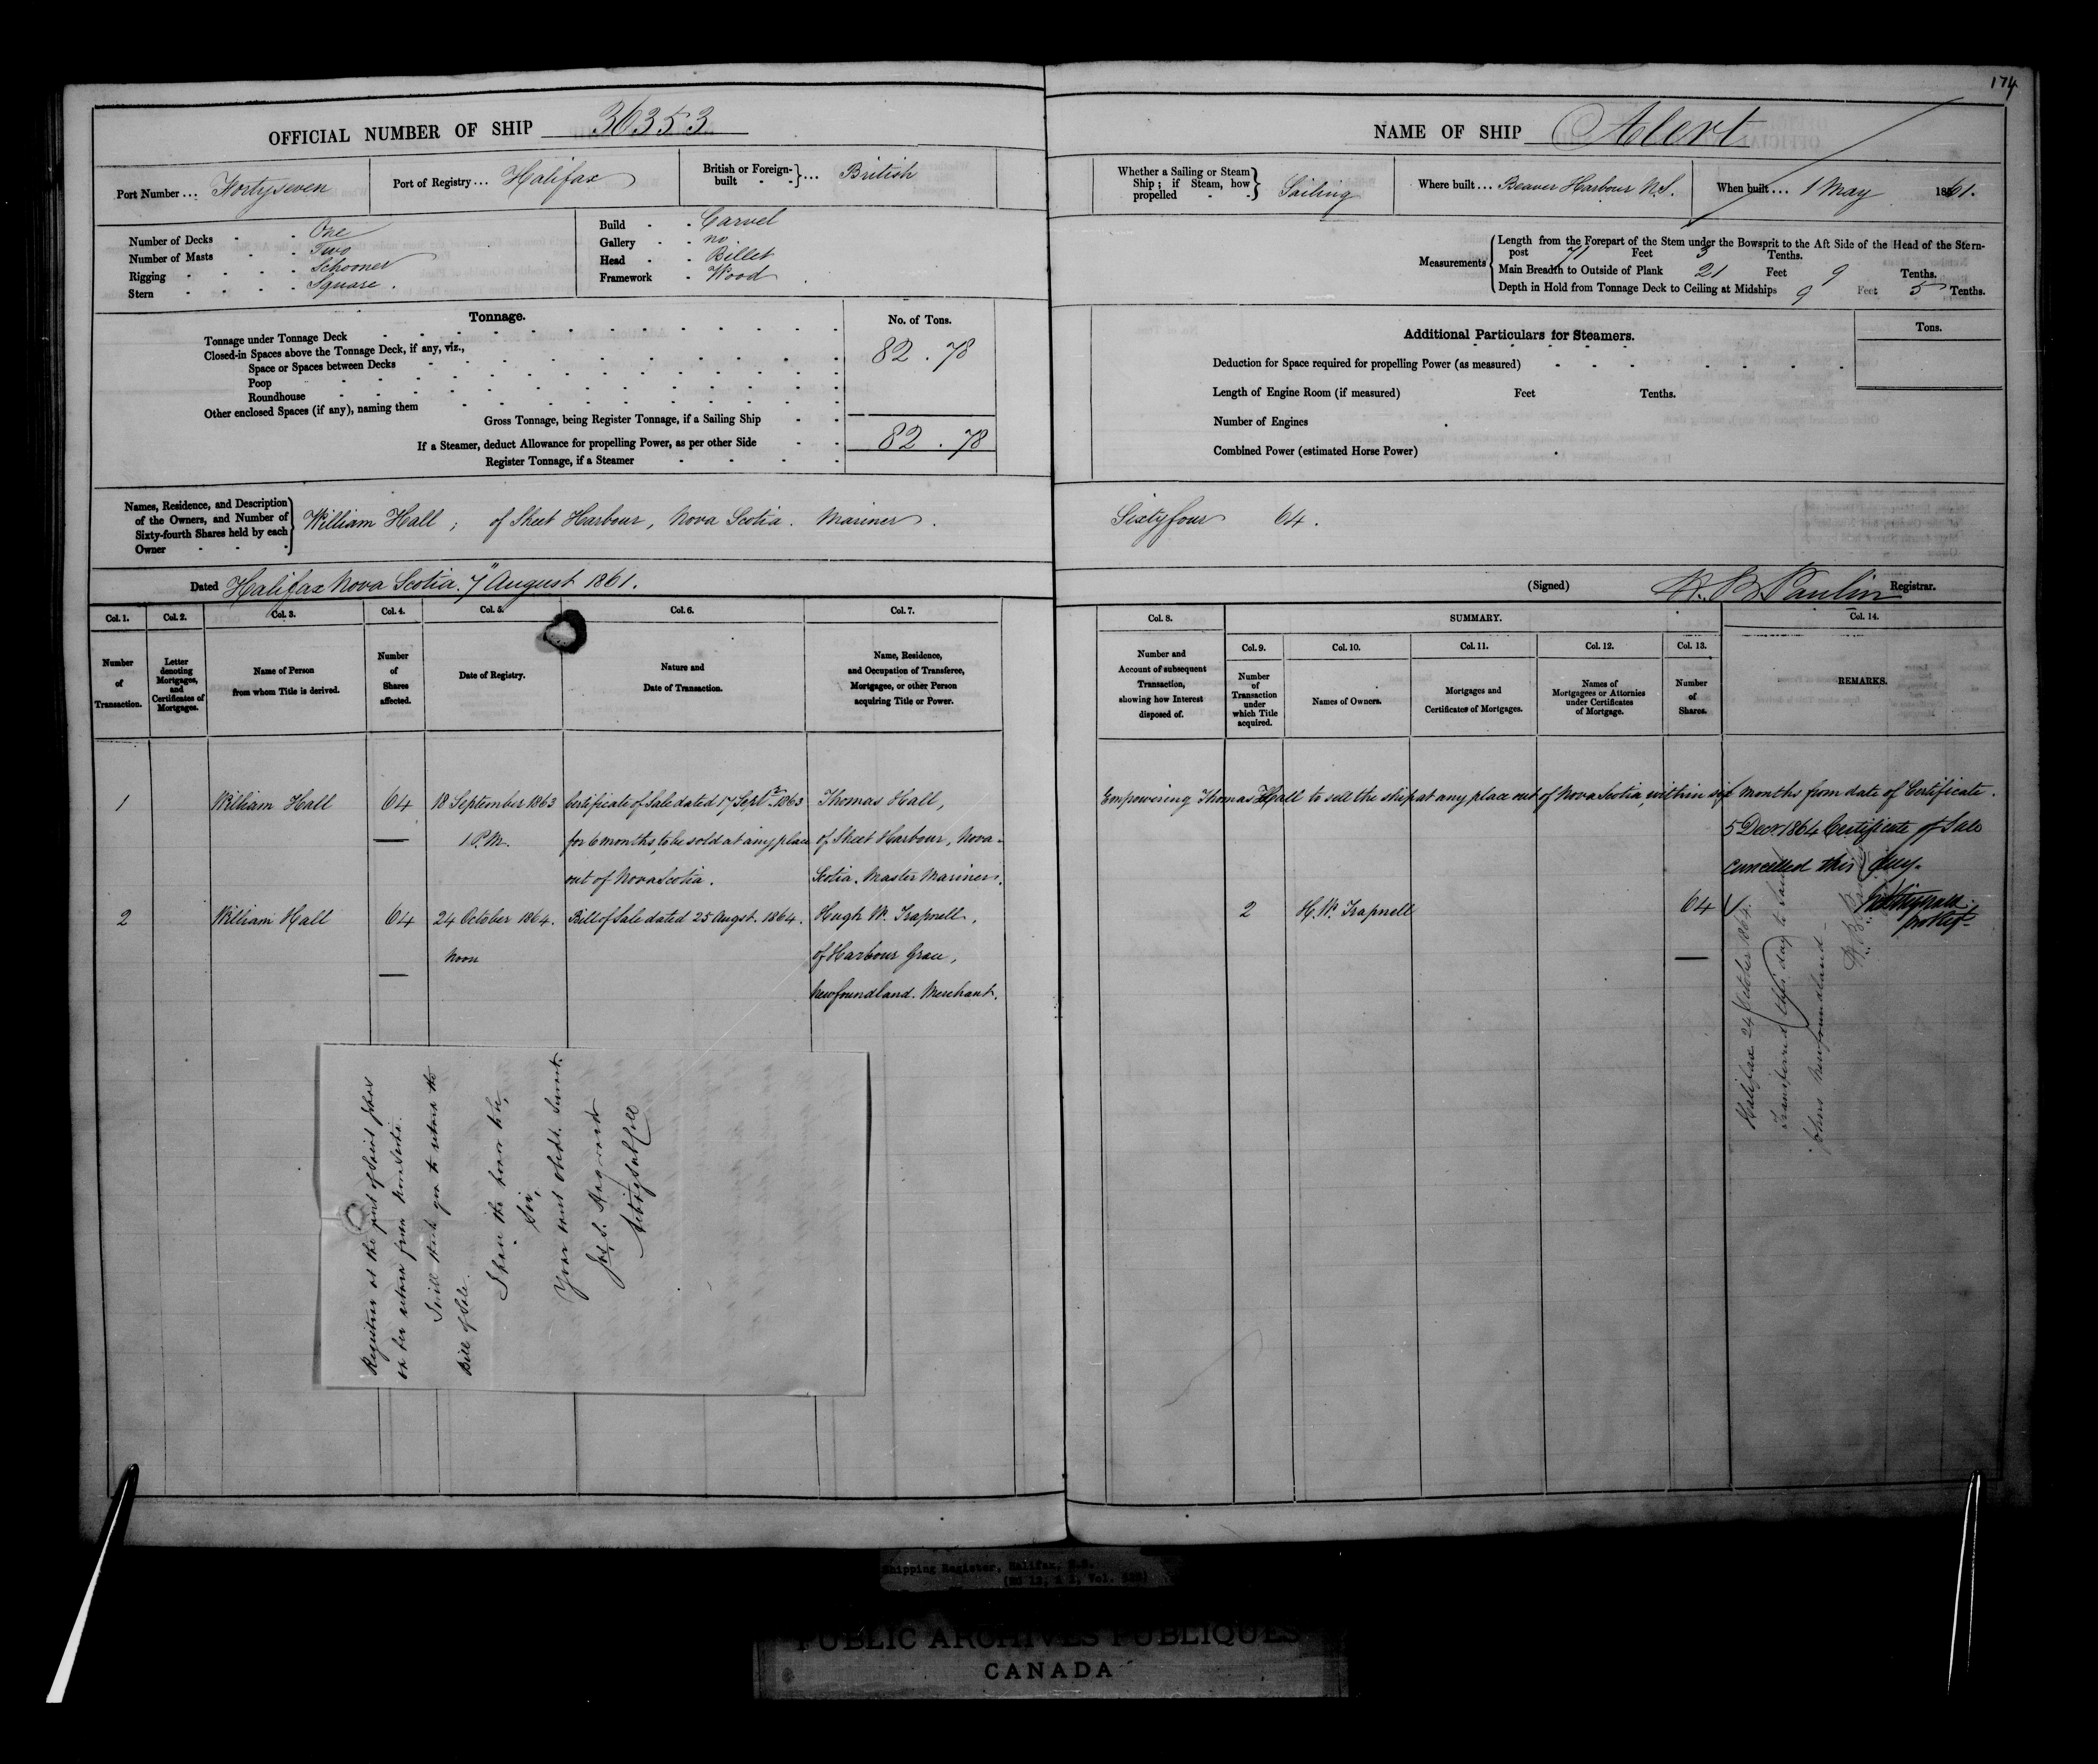 174
OFFICIAL NUMBER OF SHIP 36353
Port Number ... Fortyseven
Port of Registry ... Halifax
British or Foreign-built - - } ... British
Number of Decks - - One
Number of Masts - - Two
Rigging - - - - Schooner
Stern - - - - Square.
Build - - Carvel
Gallery - - no
Head - - Billet
Framework - Wood
Tonnage.
No. of Tons.
Tonnage under Tonnage Deck
82.78
Closed-in Spaces above the Tonnage Deck, if any, viz.,
Space or Spaces between Decks
Poop
Roundhouse
Other enclosed Spaces (if any), naming them
Gross Tonnage, being Register Tonnage, if a Sailing Ship
82.78
If a Steamer, deduct Allowance for propelling Power, as per other Side
Register Tonnage, if a Steamer
Names, Residence, and Description of the Owners, and Number of Sixty-fourth Shares held by each Owner
William Hall; of Sheet Harbour, Nova Scotia. Mariner.
Dated Halifax Nova Scotia. 7" August 1861.
NAME OF SHIP Alert
Whether a Sailing or Steam Ship; if Steam, how propelled - - } Sailing
Where built ... Beaver Harbour N.S.
When built ... 1 May 1861.
Measurements
Length from the Forepart of the Stem under the Bowsprit to the Aft Side of the Head of the Stern-
post 71 Feet 3 Tenths.
Main Breadth to Outside of Plank 21 Feet 9 Tenths.
Depth in Hold from Tonnage Deck to Ceiling at Midships 9 Feet 5 Tenths.
Additional Particulars for Steamers.
Tons.
Deduction for Space required for propelling Power (as measured)
Length of Engine Room (if measured) Feet Tenths.
Number of Engines
Combined Power (estimated Horse Power)
Sixtyfour 64.
(Signed) Registrar.
Col. 1. Col. 2. Col. 3. Col. 4. Col. 5. Col. 6. Col. 7.
Number of Transaction.
Letter denoting Mortgages, and Certificates of Mortgages.
Name of Person from whom Title is derived.
Number of Shares affected.
Date of Registry.
Nature and Date of Transaction.
Name, Residence, and Occupation of Transferee, Mortgagee, or other Person acquiring Title or Power.
Col. 8.
SUMMARY.
Col. 14.
Col. 9. Col. 10. Col. 11. Col. 12. Col. 13.
Number and Account of subsequent Transaction, showing how Interest disposed of.
Number of Transaction under which Title acquired.
Names of Owners.
Mortgages and Certificates of Mortgages.
Names of Mortgagees or Attornies under Certificates of Mortgage.
Number of Shares.
REMARKS.
1 William Hall 64 18 September 1863 Certificate of Sale dated 17 Septr 1863 Thomas Hall,
1 P.M. for 6 months, to be sold at any place of Sheet Harbour, Nova-
out of Nova Scotia. Scotia. Master Mariner.
2 William Hall 64 24 October 1864. Bill of Sale dated 25 Augst. 1864. Hugh W. Trapnell,
Noon of Harbour Grace,
Newfoundland. Merchant.
Empowering Thomas Hall to sell the ship at any place out of Nova Scotia, within six months from date of Certificate.
5 Decr 1864 Certificate of Sale
cancelled this day.
2 H. W. Trapnell 64
Halifax 24 October 1864.
Transferred this day to Saint
Johns Newfoundland-
Registrar at the port of Saint Johns
on her return from Nova Scotia.
I will thank you to return the
Bill of Sale.
I have the honor to be,
Sir,
Your most obedt. Servt.
Shipping Register, Halifax, N.S.
PUBLIC ARCHIVES PUBLIQUES
CANADA